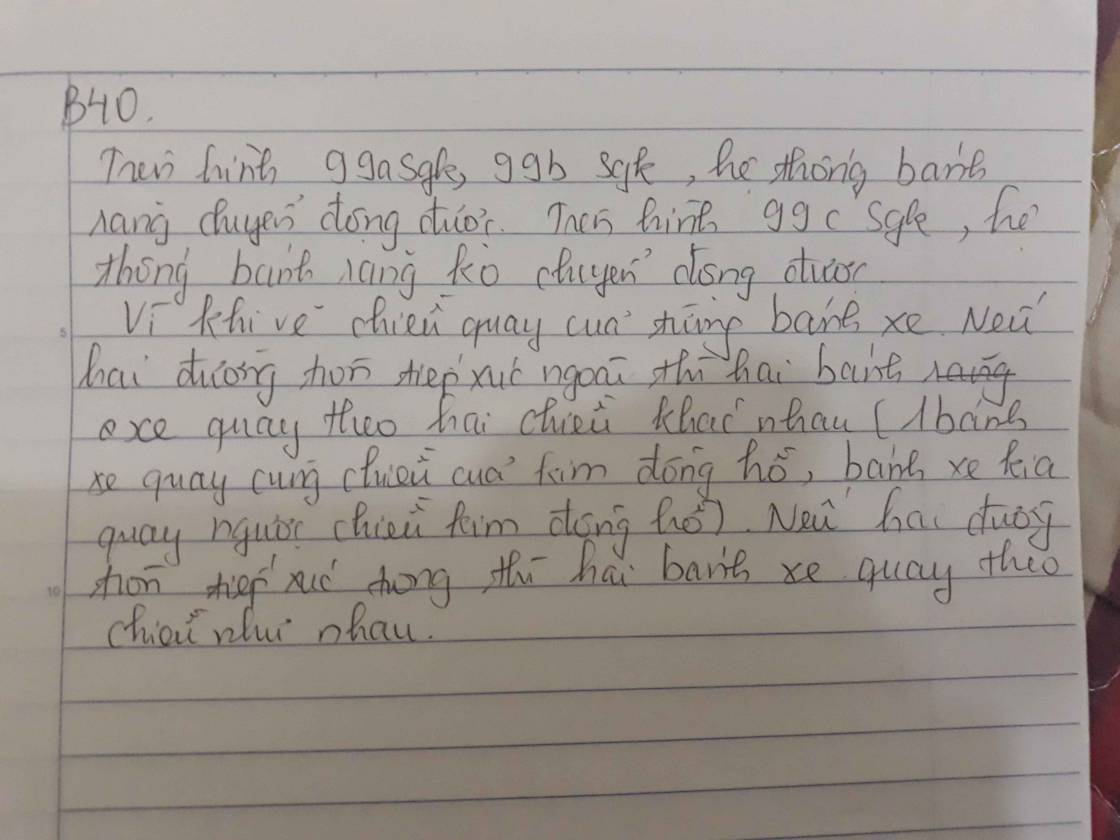 B40.
Trên hình 99a sgk, 99b sgk, hệ thống bánh
răng chuyển động được. Trên hình 99c sgk, hệ
thống bánh răng ko chuyển động được
Vì khi vẽ chiều quay của từng bánh xe. Nếu
hai đường tròn tiếp xúc ngoài thì hai bánh răng
xe quay theo hai chiều khác nhau (1 bánh
xe quay cùng chiều của kim đồng hồ, bánh xe kia
quay ngược chiều kim đồng hồ). Nếu hai đường
tròn tiếp xúc trong thì hai bánh xe quay theo
chiều như nhau.
5
10